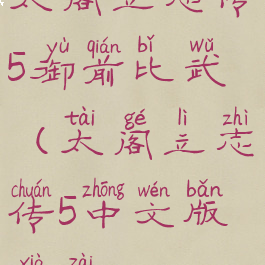 太阁立志传
yù qián bǐ wǔ
5御前比武
tài gé lì zhì
(太阁立志
chuán zhōng wén bǎn
传5中文版
xià zài